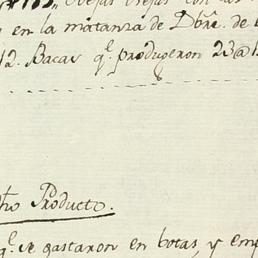 Ovejas viejas con las
en la matanza de Dbr̃e. de
12. Bacas q.e produgeron 23@
dho Producto.
q.e se gastaron en botas, y emp